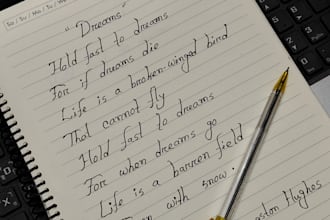 "Dreams"
Hold fast to dreams
For if dreams die
Life is a broken-winged bird
That cannot fly
Hold fast to dreams
For when dreams go
Life is a barren field
with snow.
Hughes